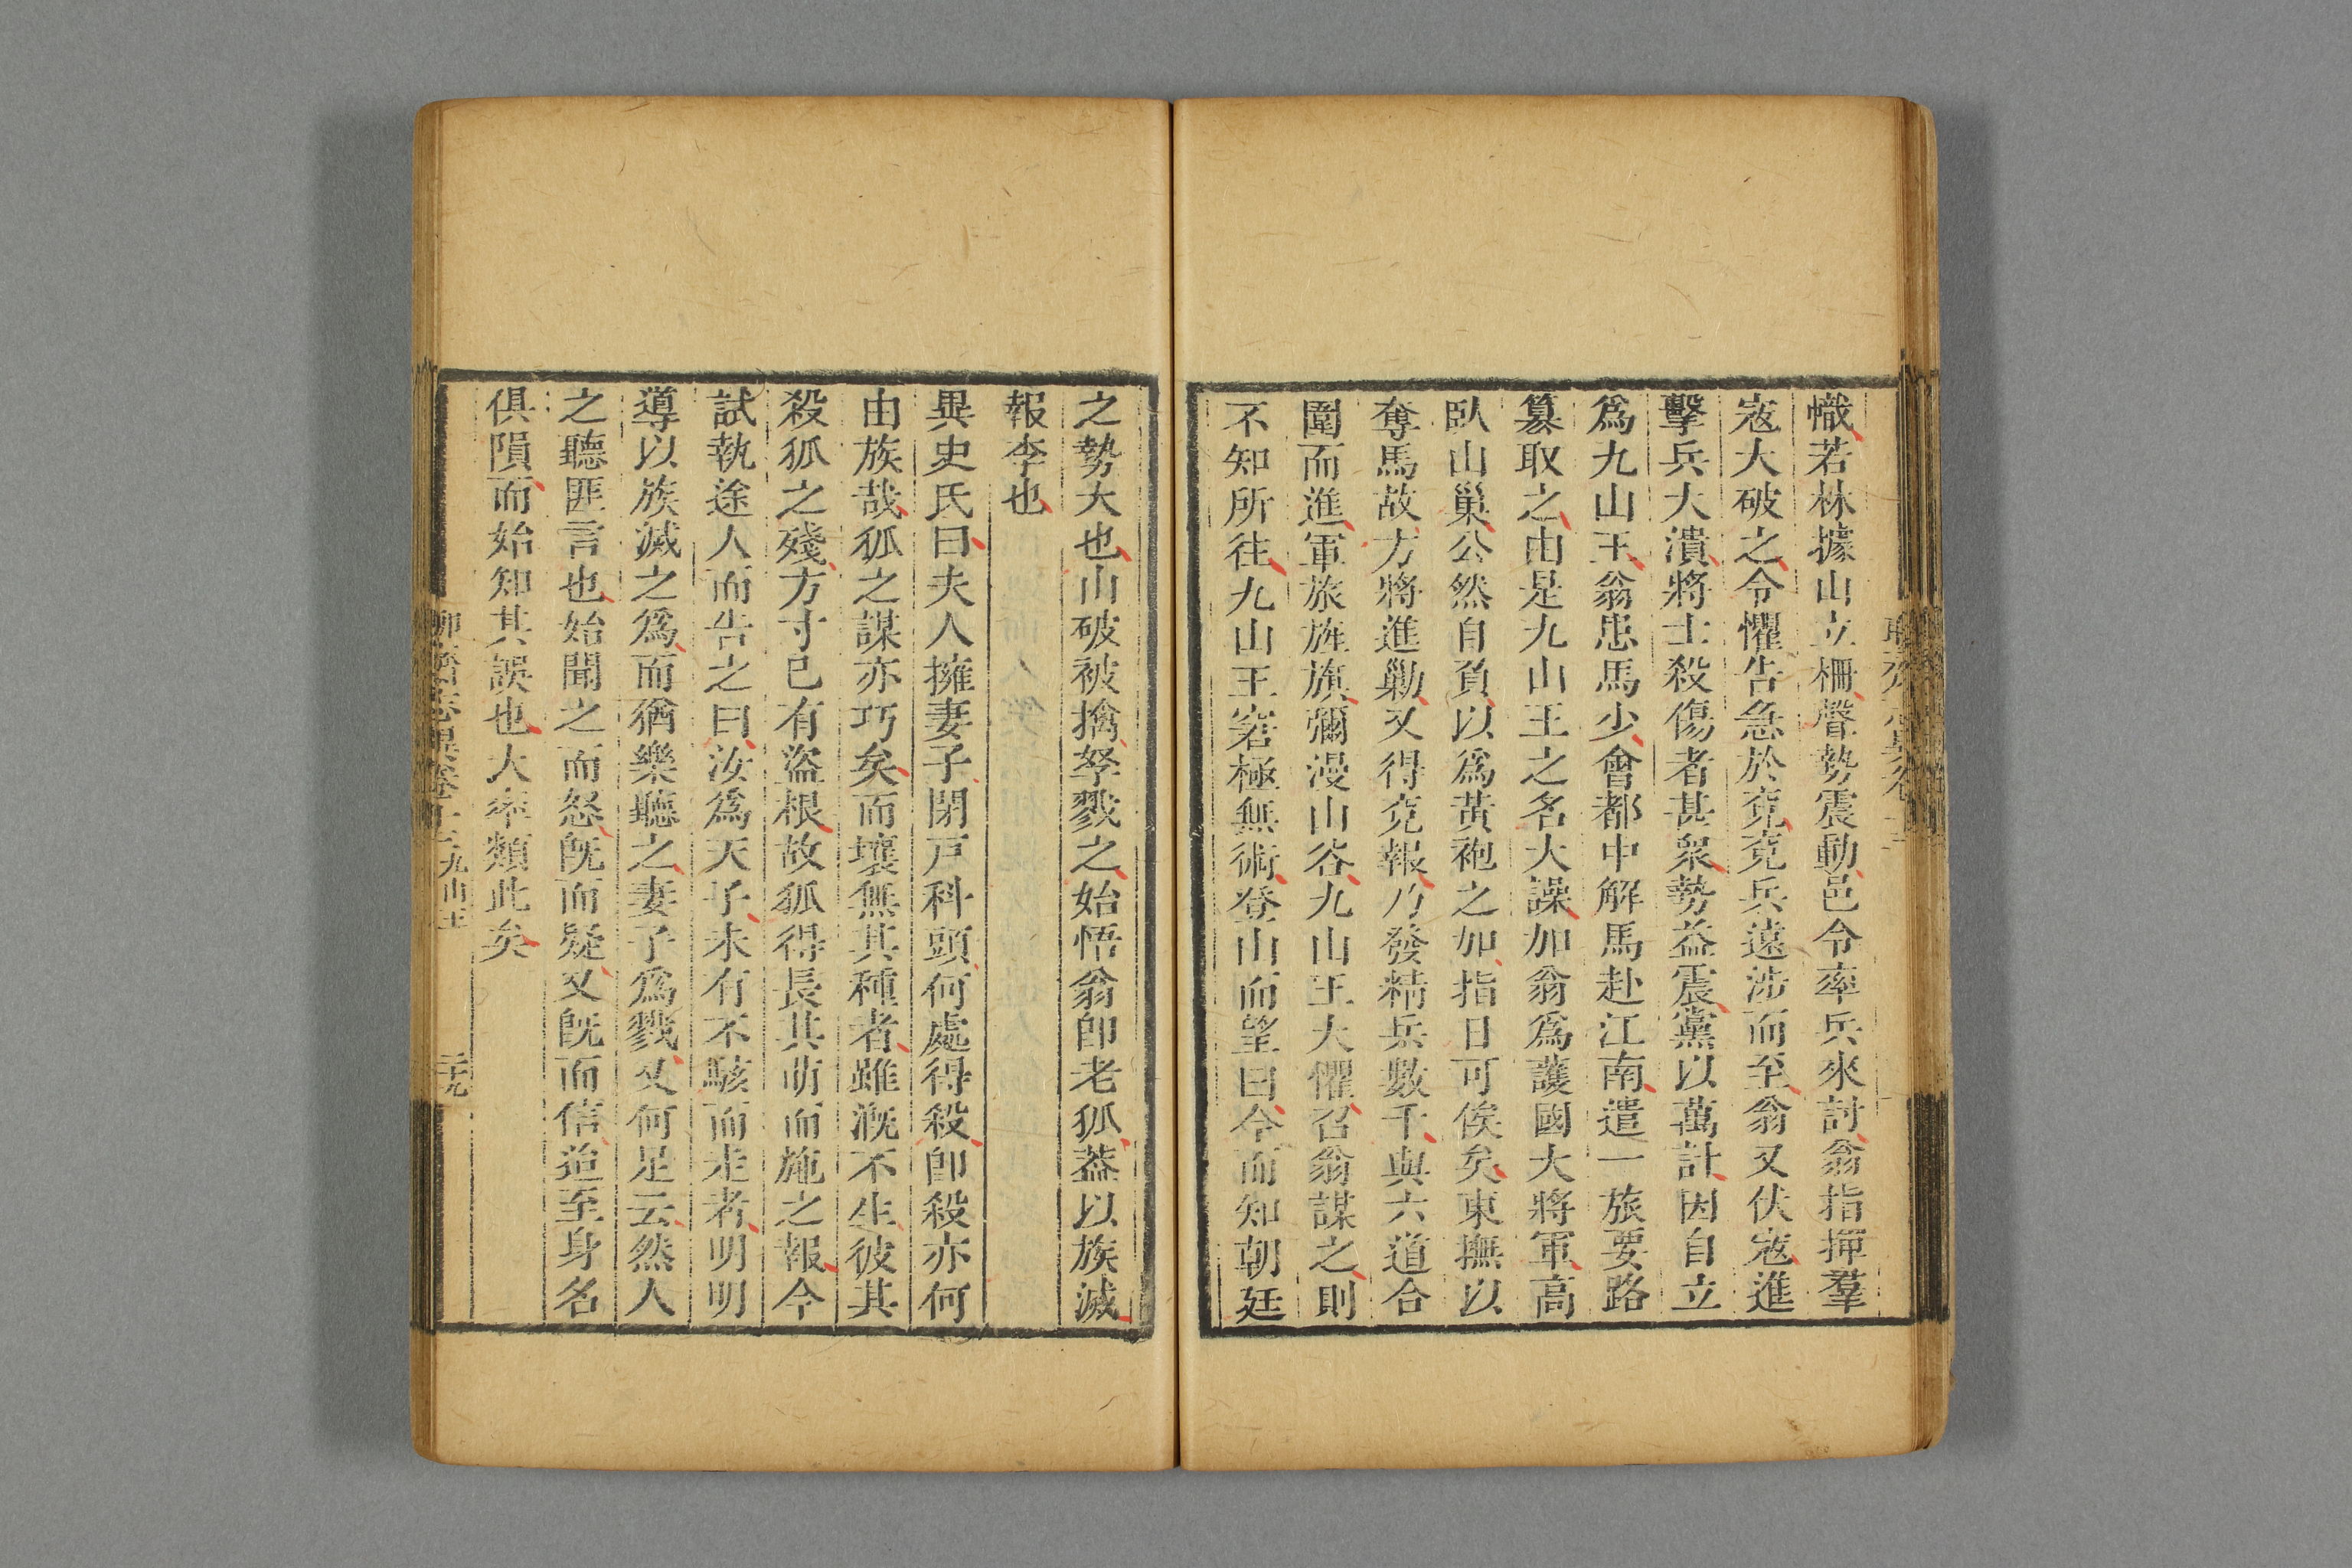 幟若林據山立柵聲勢震動邑令率兵來討翁指揮羣
寇大破之令懼告急於兗兗兵遠涉而至翁又伏寇進
擊兵大潰將士殺傷者甚衆勢益震黨以萬計因自立
爲九山王翁患馬少會都中解馬赴江南遣一旅要路
篡取之由是九山王之名大譟加翁爲護國大將軍高
臥山巢公然自負以爲黃袍之加指日可俟矣東撫以
奪馬故方將進勦又得兗報乃發精兵數千與六道合
圍而進軍旅旌旗彌漫山谷九山王大懼召翁謀之則
不知所往九山王窘極無術登山而望曰今而知朝廷
之勢大也山破被擒孥戮之始悟翁卽老狐葢以族滅
報李也
異史氏曰夫人擁妻子閉戸科頭何處得殺卽殺亦何
由族哉狐之謀亦巧矣而壤無其種者雖漑不生彼其
殺狐之殘方寸已有盜根故狐得長其萌而施之報今
試執途人而告之曰汝爲天子未有不駭而走者明明
導以族滅之爲而猶樂聽之妻子爲戮又何足云然人
之聽匪言也始聞之而怒旣而疑又旣而信迨至身名
俱隕而始知其誤也大率類此矣
聊齋志異卷十三 九山王 三九